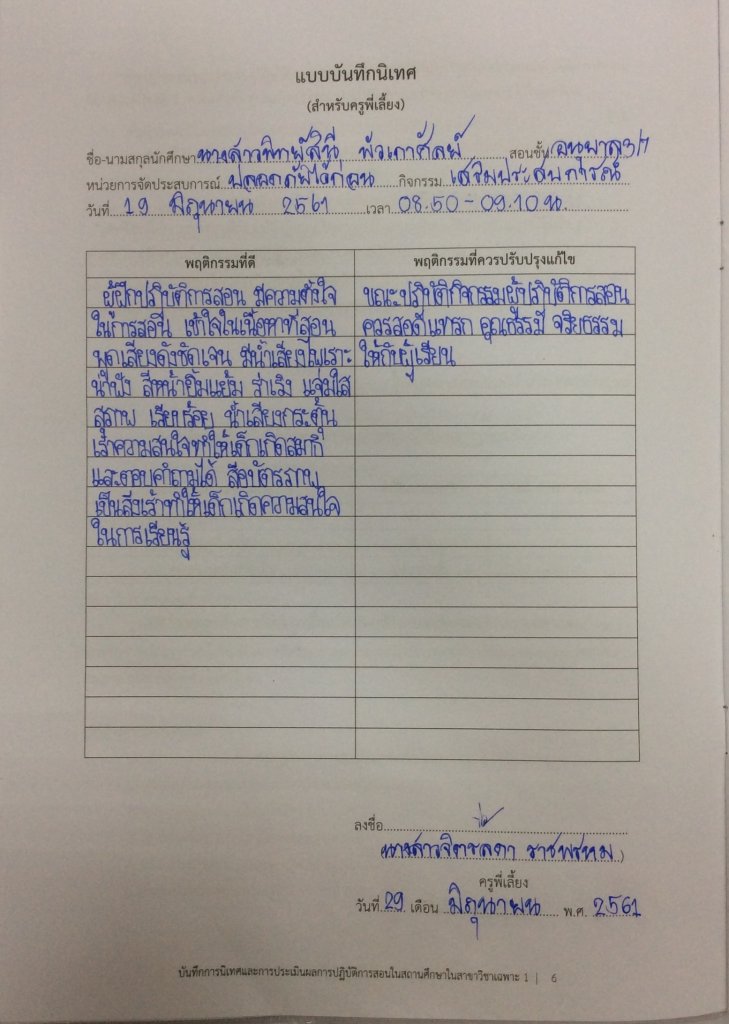 แบบบันทึกนิเทศ
(สำหรับครูพี่เลี้ยง)
ชื่อ-นามสกุลนักศึกษา นางสาวพิทยุ์สินี พัวเกาศัลย์ สอนชั้น อนุบาล 3/1
หน่วยการจัดประสบการณ์ ปลอดภัยไว้ก่อน กิจกรรม เสริมประสบการณ์
วันที่ 19 มิถุนายน 2561 เวลา 08.50-09.10 น.
พฤติกรรมที่ดี
ผู้ฝึกปฏิบัติการสอน มีความตั้งใจ
ในการสอน เข้าใจในเนื้อหาที่สอน
พูดเสียงดังชัดเจน มีน้ำเสียงไพเราะ
น่าฟัง สีหน้ายิ้มแย้ม ร่าเริง แจ่มใส
สุภาพ เรียบร้อย น้ำเสียงกระตุ้น
เร้าความสนใจทำให้เด็กเกิดสมาธิ
และตอบคำถามได้ สื่อบัตรภาพ
เป็นสิ่งเร้าทำให้เด็กเกิดความสนใจ
ในการเรียนรู้
พฤติกรรมที่ควรปรับปรุงแก้ไข
ขณะปฏิบัติกิจกรรมผู้ปฏิบัติการสอน
ควรสอดแทรก คุณธรรม จริยธรรม
ให้กับผู้เรียน
ลงชื่อ
(นางสาวจิตรลดา ราชพรหม)
ครูพี่เลี้ยง
วันที่ 29 เดือน มิถุนายน พ.ศ. 2561
บันทึกการนิเทศและการประเมินผลการปฏิบัติการสอนในสถานศึกษาในสาขาวิชาเฉพาะ 1 | 6